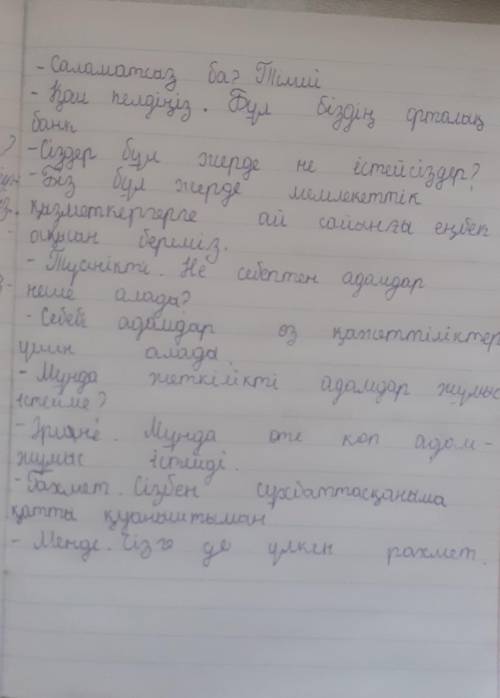 - Саламатсаз ба? Тимий
- Қаи келдіңіз. Бұл біздің орталық
банк
- Сіздер бұл жерде не істейсіздер?
- Біз бұл жерде мемлекеттік
қызметкерлерге ай сайынғы еңбек
ақысын береміз.
- Түсінікті. Не себептен адамдар
неше алада?
- Себебі адамдар өз қажеттіліктер
үшін алада.
- Мұнда жеткілікті адамдар жұмыс
істейме?
- Әрине. Мұнда өте көп адам -
жұмыс істейді.
- Рахмет. Сізбен сұхбаттасқаныма
қатты қуаныштыман
- Менде. Сізге де үлкен рахмет.